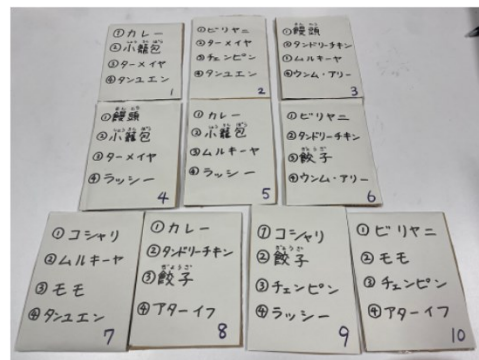 ①カレー
②小籠包
③ターメイヤ
④タンユエン
1
①ビリヤニ
②ターメイヤ
③チェンピン
④タンユエン
2
①饅頭
②タンドリーチキン
③ムルキーヤ
④ウンム・アリー
3
①饅頭
②小籠包
③ターメイヤ
④ラッシー
4
①カレー
②小籠包
③ムルキーヤ
④ラッシー
5
①ビリヤニ
②タンドリーチキン
③餃子
④ウンム・アリー
6
①コシャリ
②ムルキーヤ
③モモ
④タンユエン
7
①カレー
②タンドリーチキン
③餃子
④アターイフ
8
①コシャリ
②餃子
③チェンピン
④ラッシー
9
①ビリヤニ
②モモ
③チェンピン
④アターイフ
10